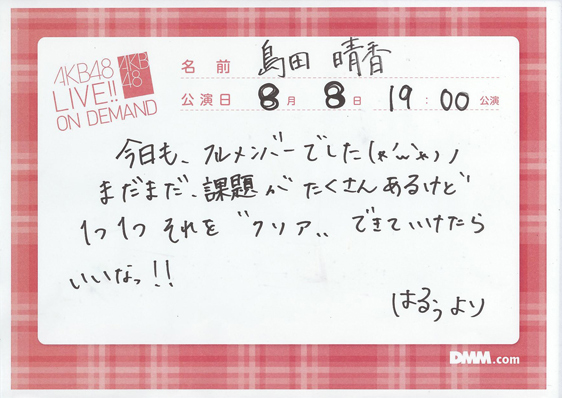 AKB48
LIVE!!
ON DEMAND
AKB
48
名前 島田 晴香
公演日 8月 8日 19:00 公演
今日も、フルメンバーでした(*'ω'*)ノ
まだまだ、課題がたくさんあるけど
1つ1つそれを〝クリア〟できていけたら
いいなっ!!
はるぅより
DMM.com